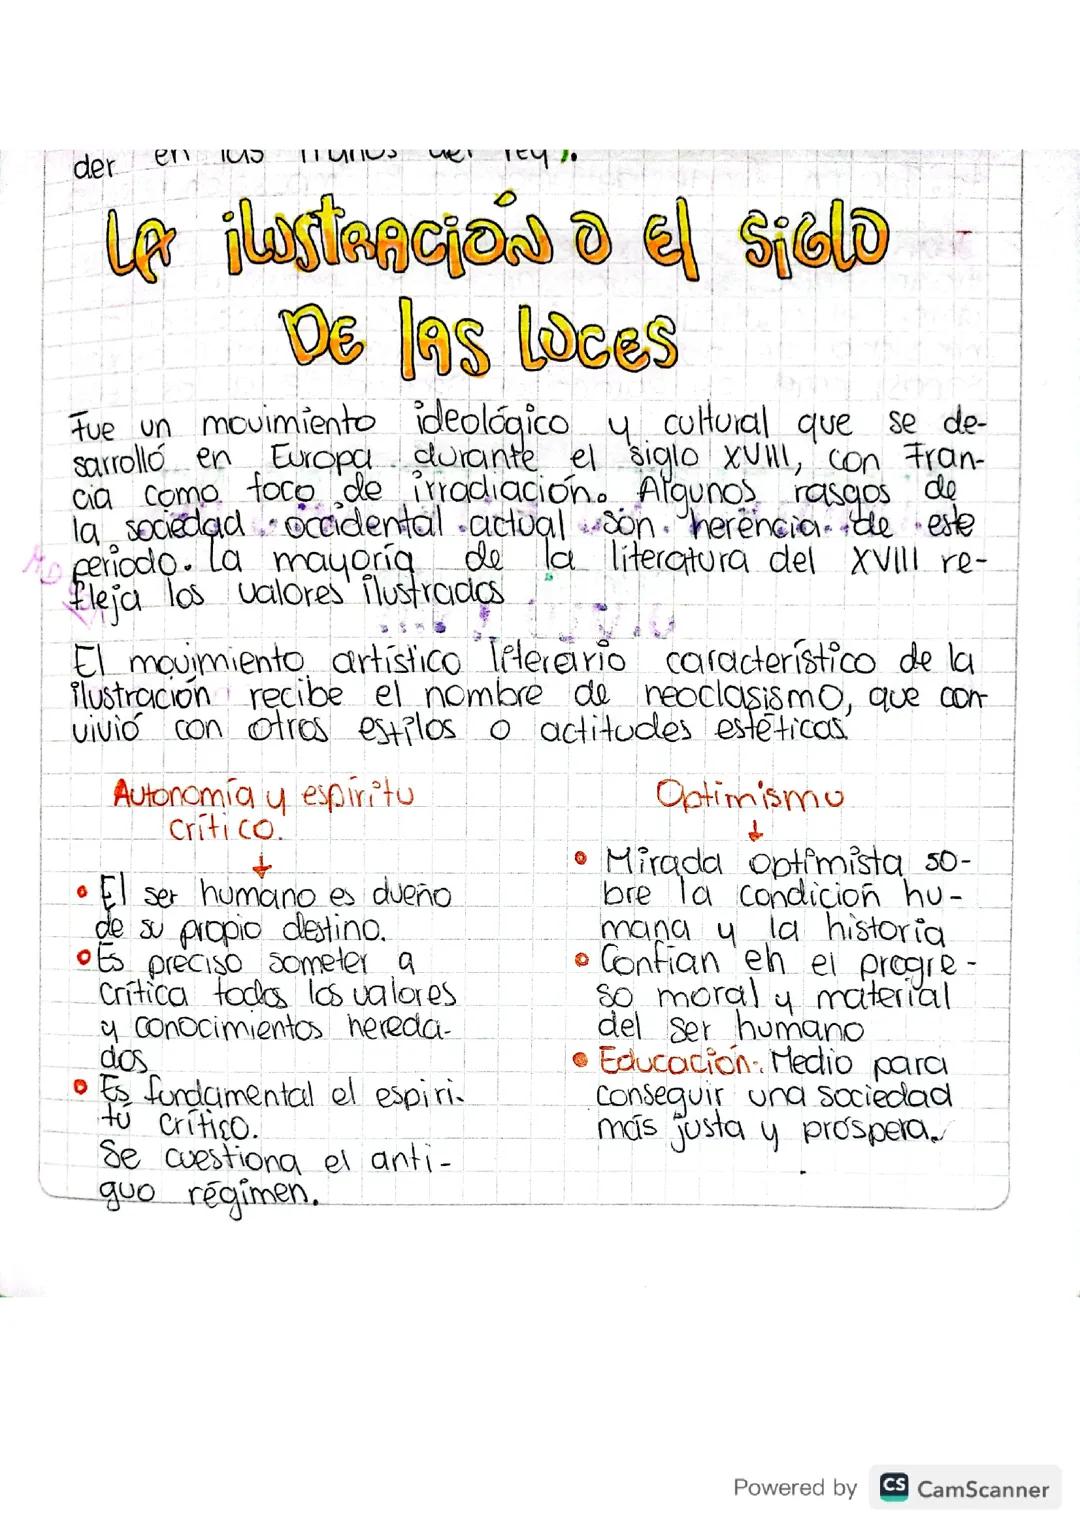 der en las manos del rey).
LA ilUSTRACIÓN O El SiGlO
DE lAS LUCES
Fue un movimiento ideológico y cultural que se de-
sarrolló en Europa durante el siglo XVIII, con Fran-
cia como foco de irradiación. Algunos rasgos de
la sociedad occidental actual son herencia de este
periodo. La mayoría de la literatura del XVIII re-
fleja los valores ilustrados
El movimiento artístico literario característico de la
ilustración recibe el nombre de neoclasismo, que con
vivió con otros estilos o actitudes estéticas.
Autonomía y espíritu
crítico.
↓
• El ser humano es dueño
de su propio destino.
• Es preciso someter a
crítica todos los valores
y conocimientos hereda-
dos
• Es fundamental el espiri-
tu crítico.
Se cuestiona el anti-
guo régimen.
Optimismo
↓
• Mirada optimista so-
bre la condición hu-
mana y la historia
• Confían en el progre-
so moral y material
del ser humano
• Educación: Medio para
conseguir una sociedad
más justa y próspera.
Powered by CS CamScanner